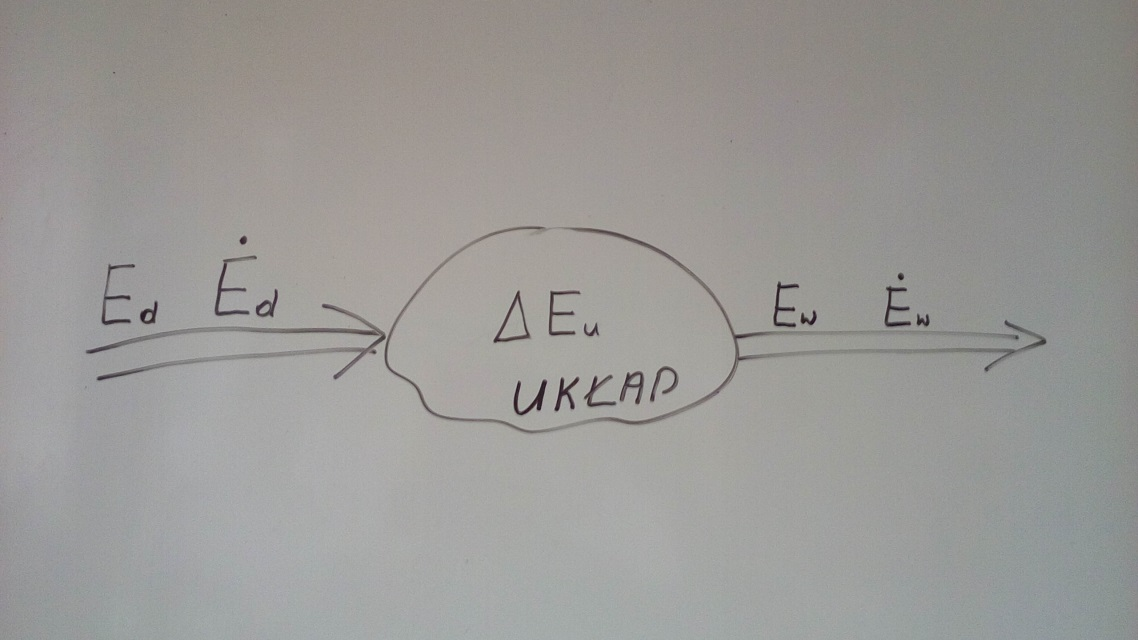 Ed Ėd
ΔEu
UKŁAD
Ew Ėw